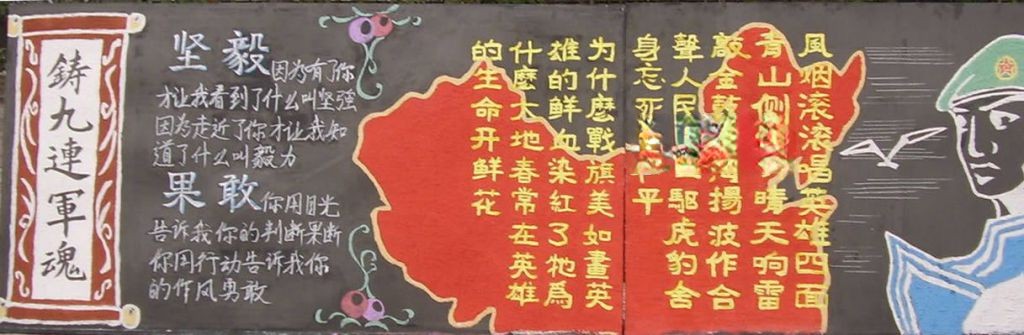 鑄九連軍魂
坚毅因为有了你
才让我看到了什么叫坚强
因为走近了你才让我知
道了什么叫毅力
果敢你用目光
告诉我你的判断果断
你用行动告诉我你
的作风勇敢
風烟滚滚唱英雄四面
青山侧晴天响雷
敲金鼓揚波作合
聲人民驅虎豹舍
身忘死平
为什麽戰旗美如畫英
雄的鲜血染紅了牠爲
什麽大地春常在英雄
的生命开鲜花